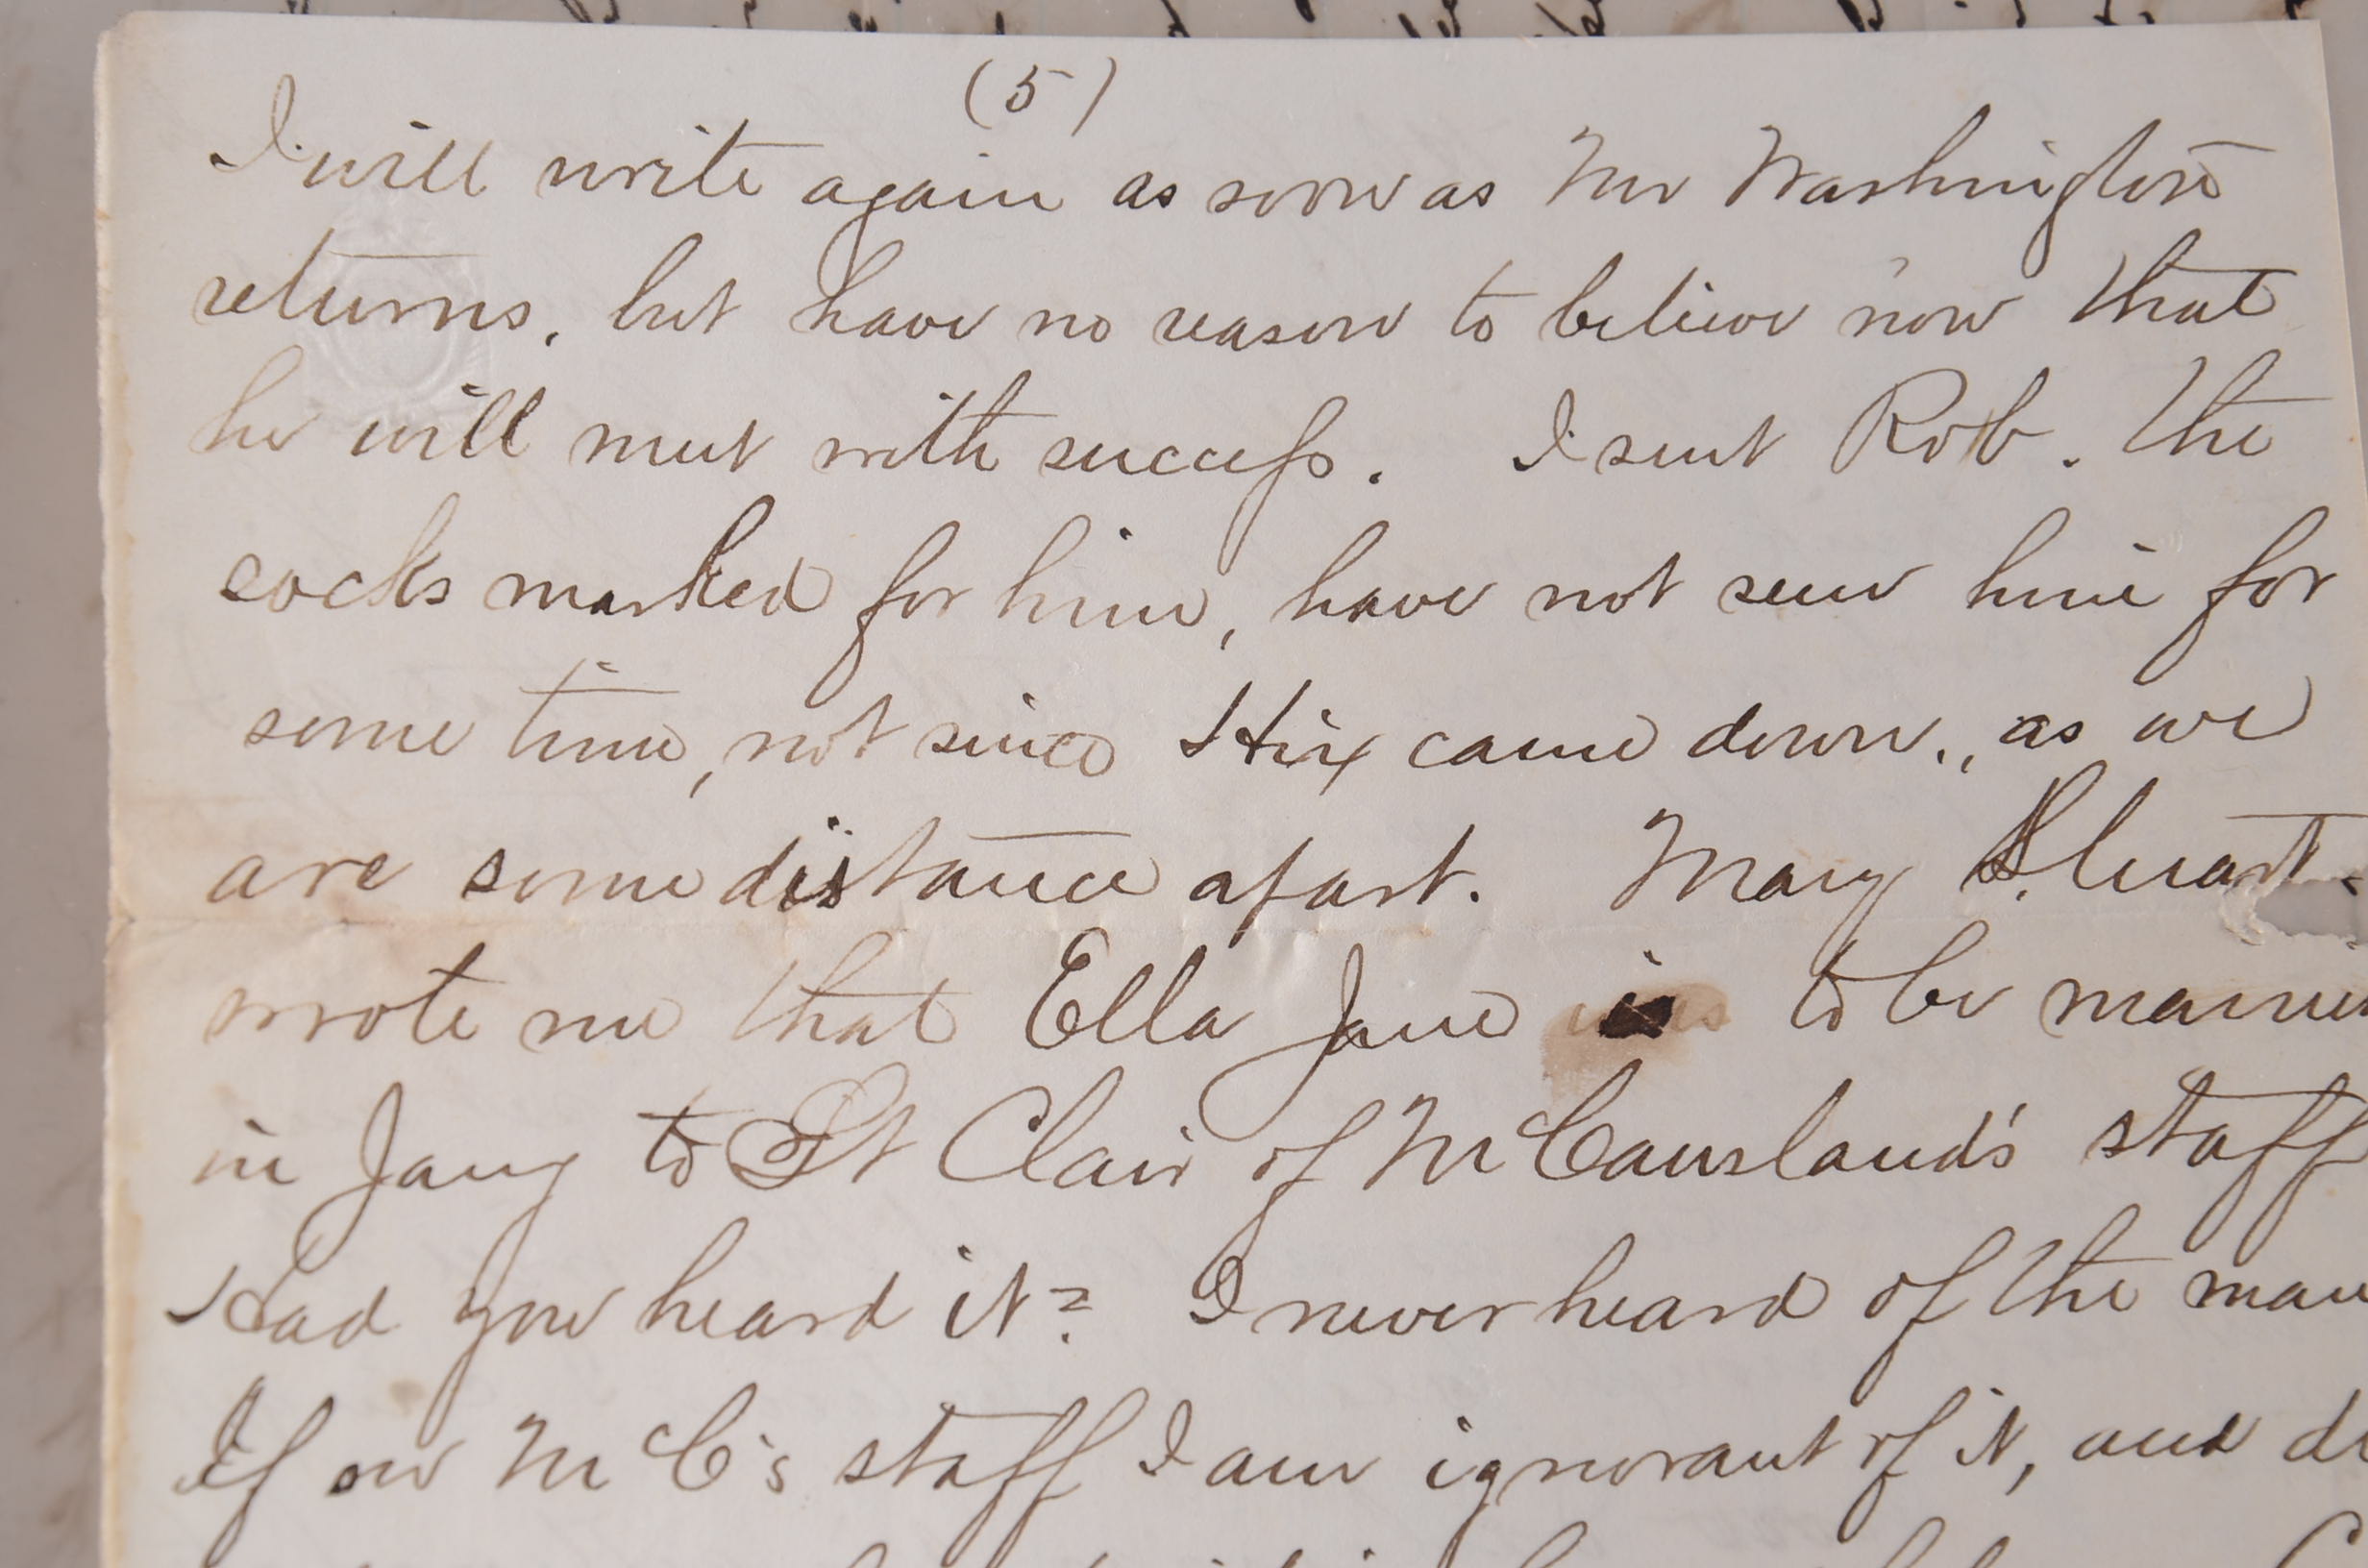 (5)
I will write again as soon as Mr Washington
returns, but have no reason to believe now that
he will meet with success. I sent Rob. the
socks marked for him, have not seen him for
some time, not since Hix came down., as we
are some distance apart. Mary Stuart
wrote me that Ella Jane is to be married
in Jany to St Clair of McCausland's staff
Had you heard it? I never heard of the man
If on McC's staff I am ignorant of it, and